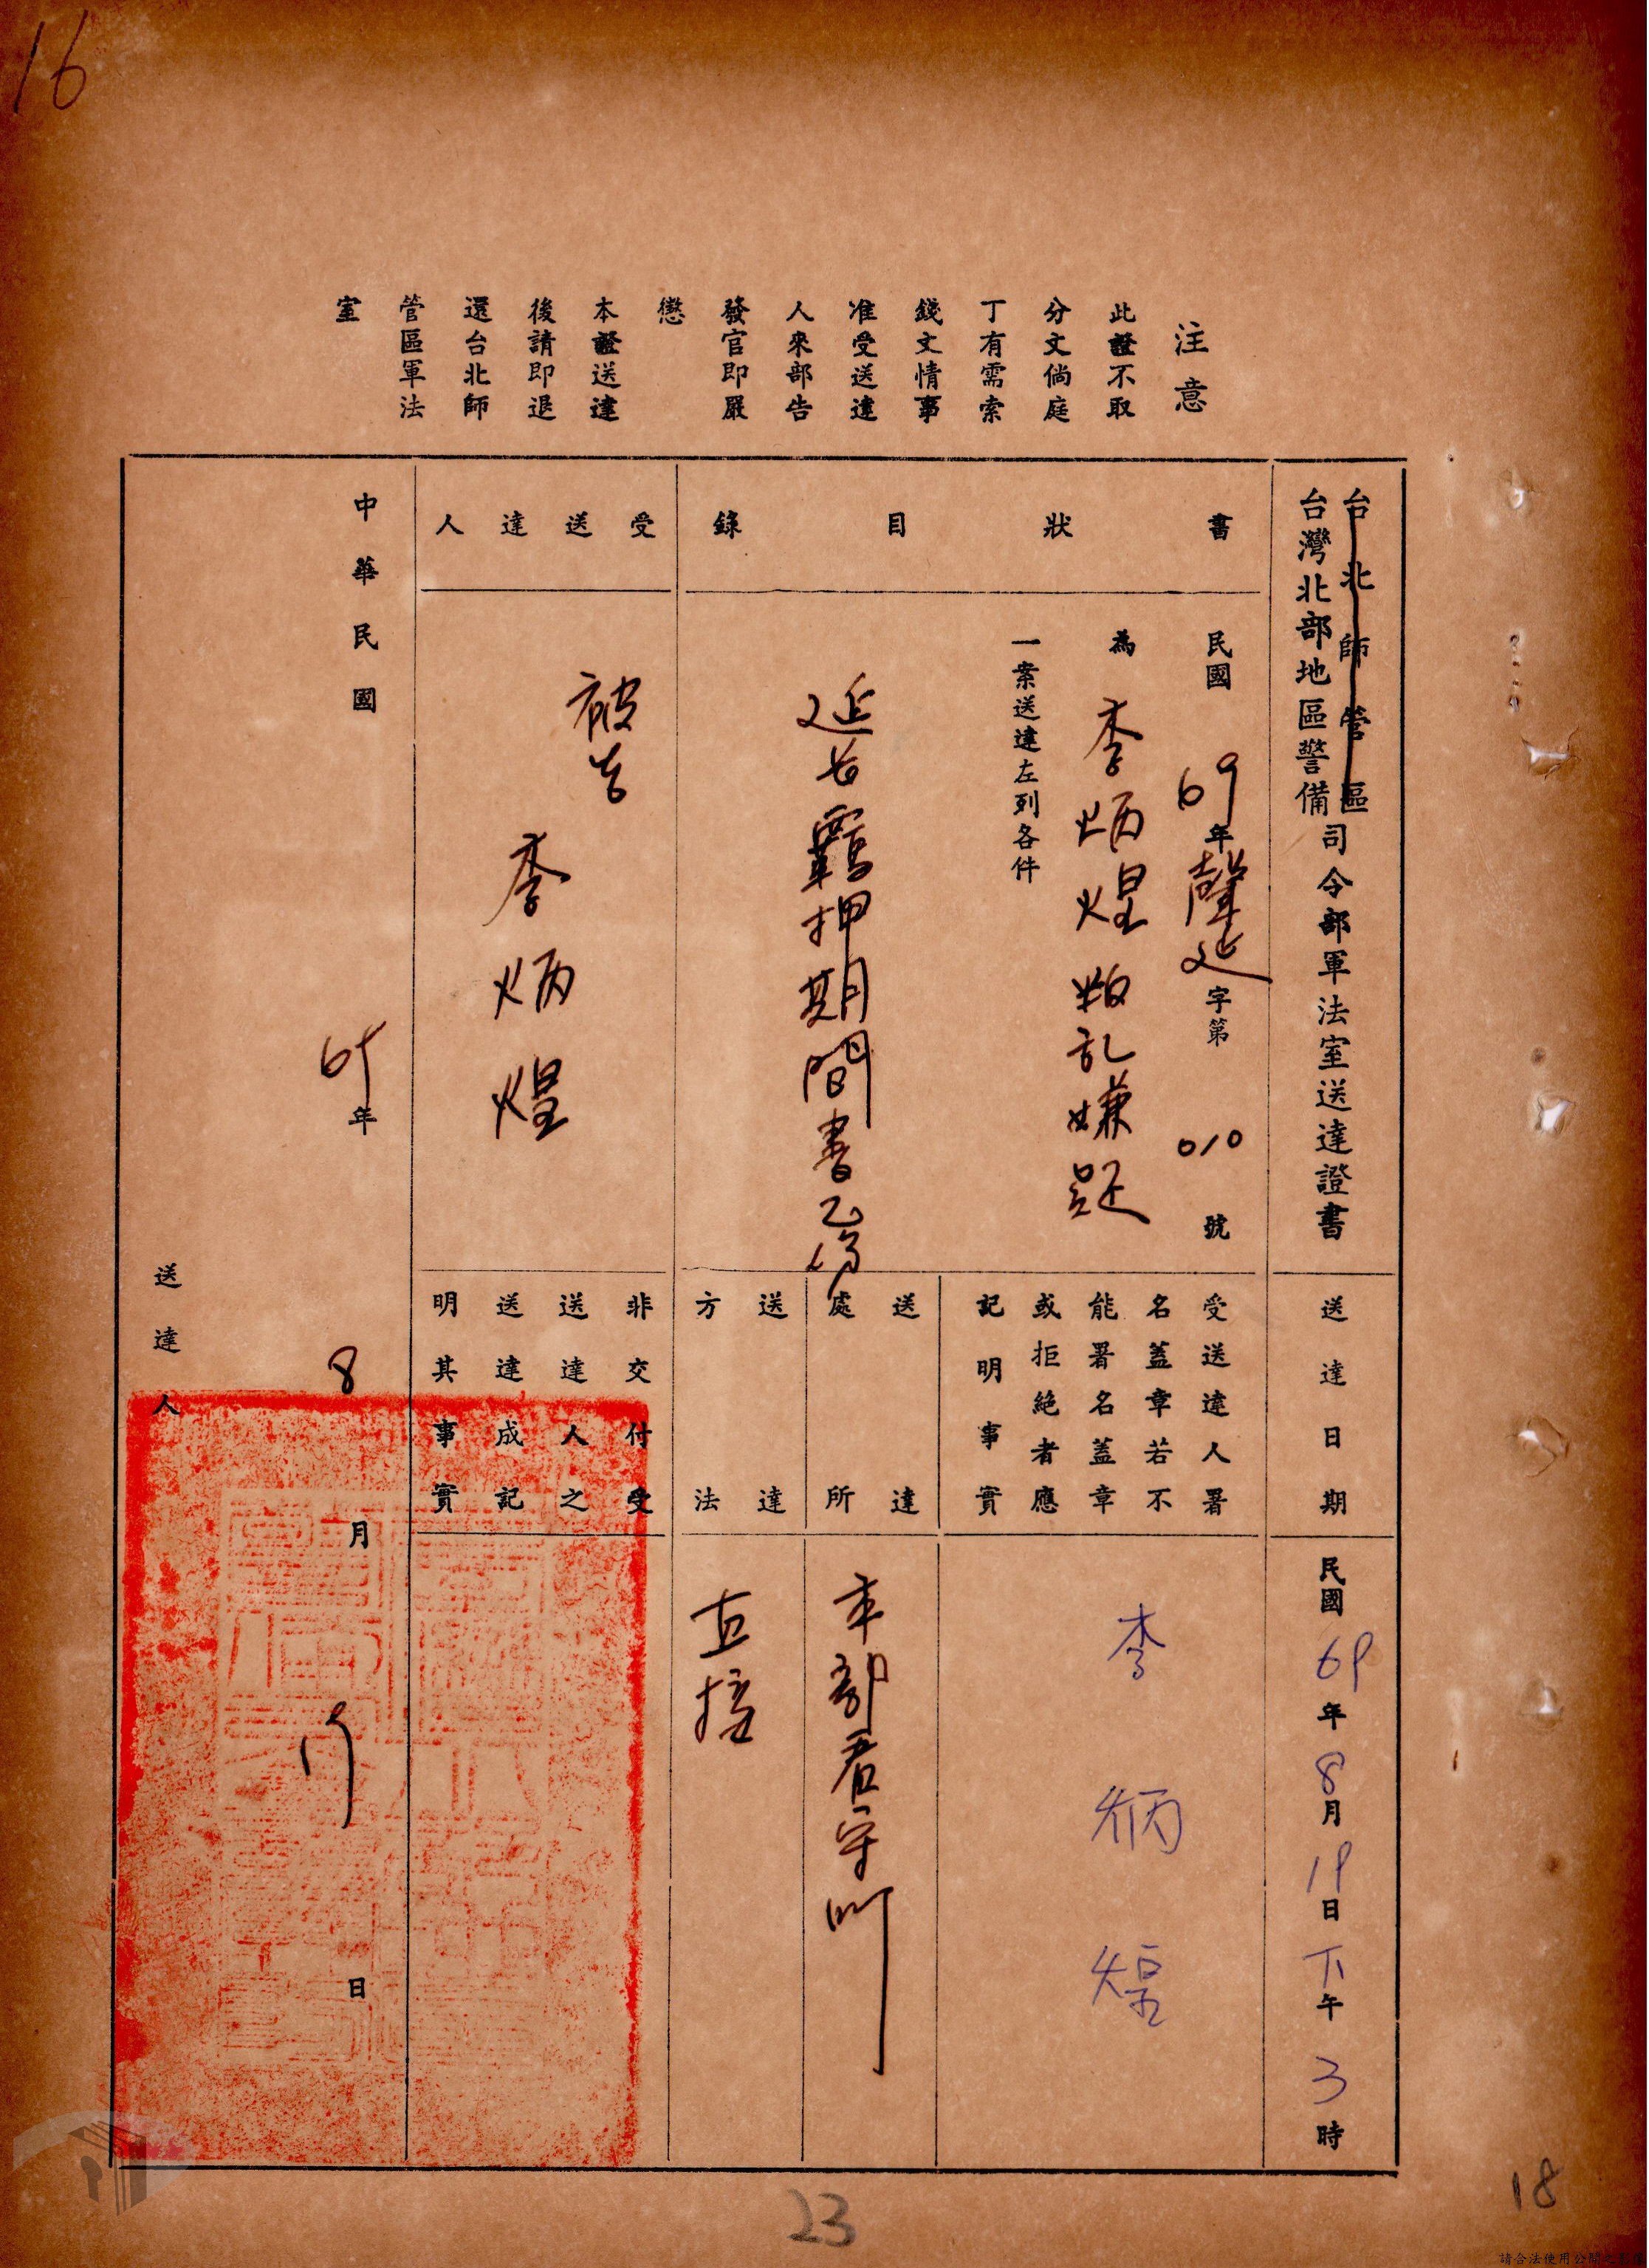 16
注意
此證不取
分文倘庭
丁有需索
錢文情事
准受送達
人來部告
發官即嚴
懲
本證送達
後請即退
還台北師
管區軍法
室
台北師管區
台灣北部地區警備
司令部軍法室送達證書
書狀目錄
民國69年聲延字第010號
為李炳煌叛乱嫌疑
一案送達左列各件
延長羈押期間書乙份
受送達人
被告
李炳煌
送達日期
民國69年8月19日下午3時
受送達人署
名蓋章若不
能署名蓋章
或拒絕者應
記明事實
李炳煌
送達
處所
本部看守所
送達
方法
直接
非交付受
送達人之
送達成記
明其事實
中華民國69年8月19日
送達人
23
18
請合法使用公開之影像